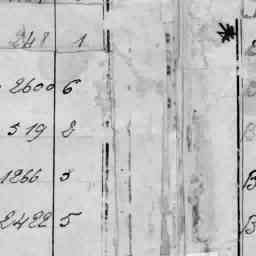 248 1
2600 6
519 2
1266 5
2422 5
B
B